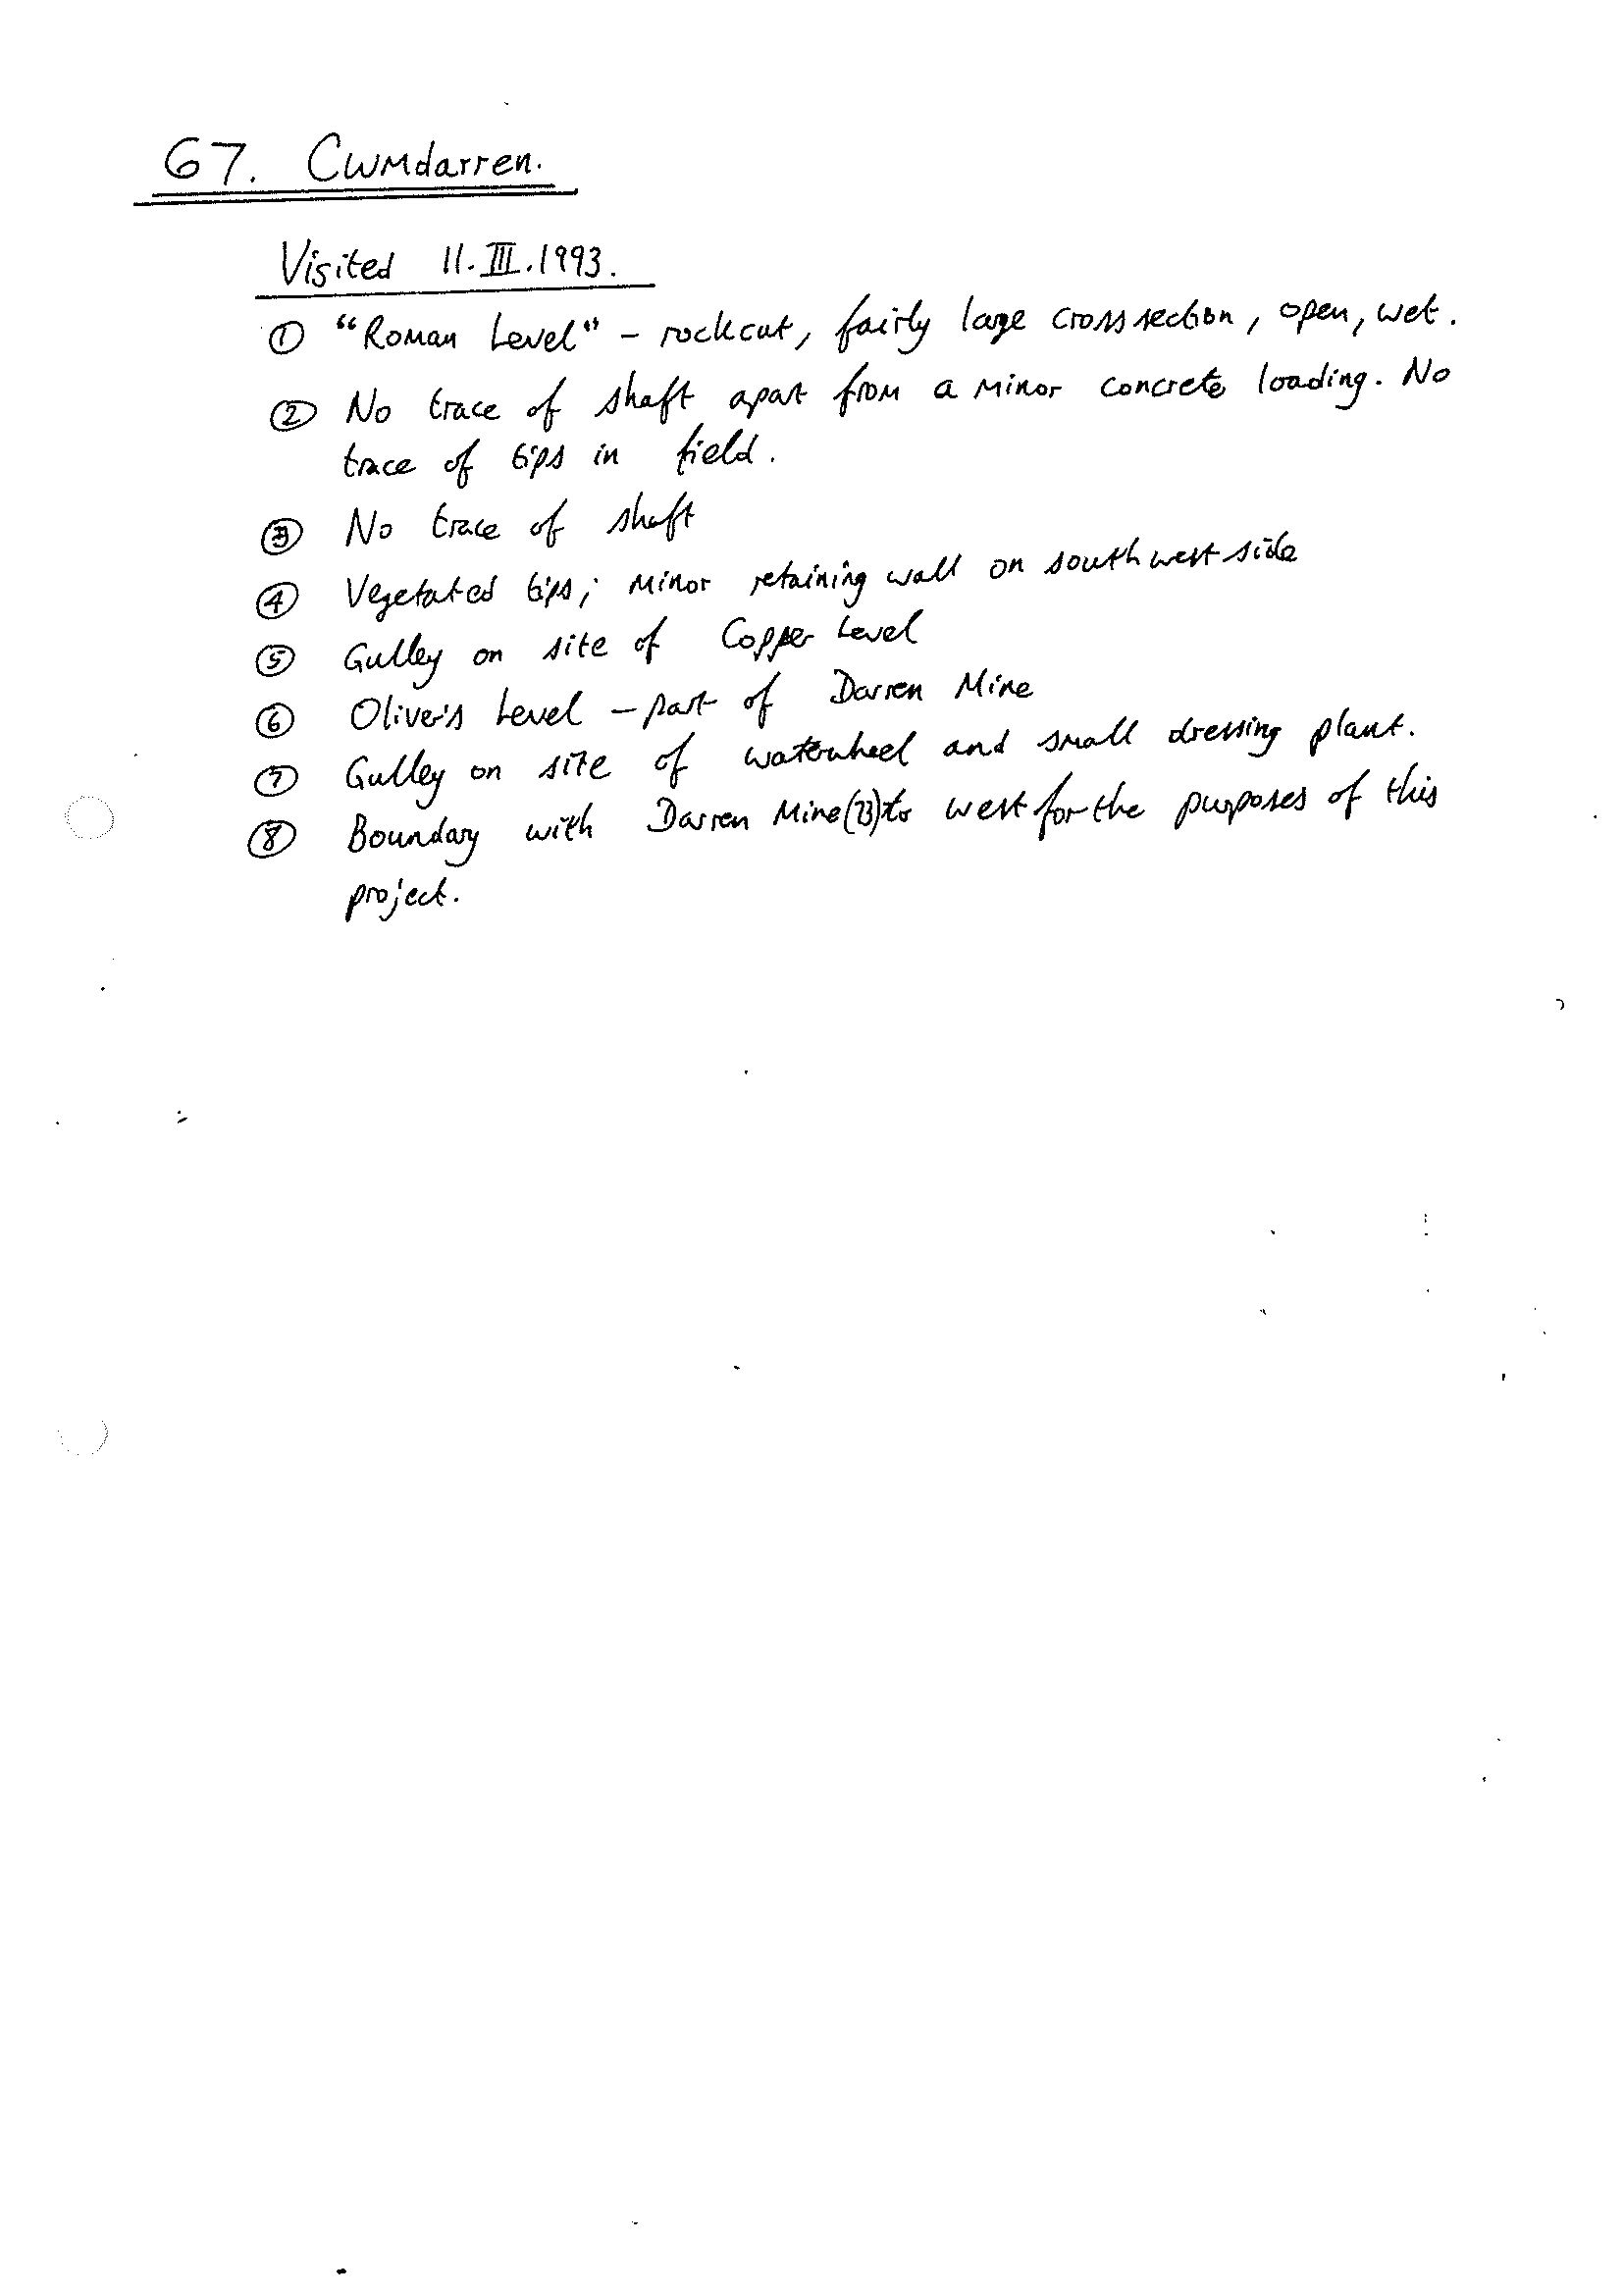 67. Cwmdarren.
Visited 11.III.1993.
① "Roman Level" - rockcut, fairly large cross section, open, wet.
② No trace of shaft apart from a minor concrete loading. No
trace of tips in field.
③ No trace of shaft
④ Vegetated tips; minor retaining wall on southwest side
⑤ Gulley on site of Copper Level
⑥ Oliver's Level - part of Darren Mine
⑦ Gulley on site of waterwheel and small dressing plant.
⑧ Boundary with Darren Mine to west for the purposes of this
project.